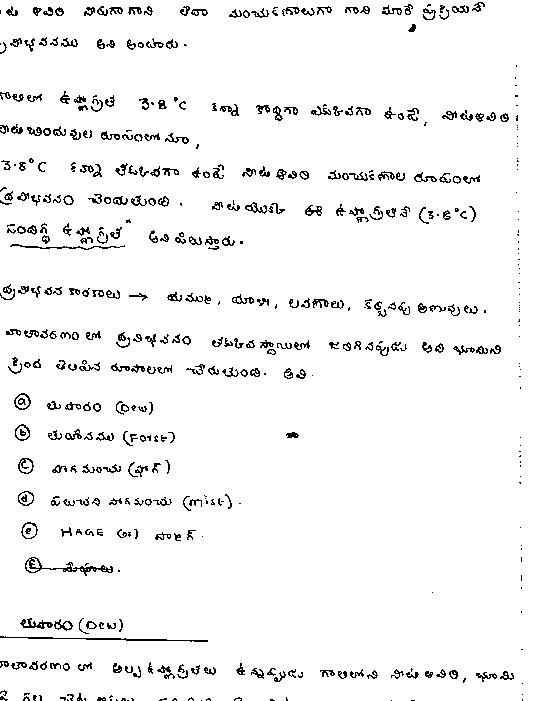 ఆవిరి నీరుగా గాని లేదా మంచుకణాలుగా గాని మారే ప్రక్రియనే
ద్రవీభవనము అని అంటారు.
గాలిలో ఉష్ణోగ్రత 3.8°C కన్నా కొద్దిగా ఎక్కువగా ఉంటే, నీటిఆవిరి
నీటి బిందువుల రూపంలోనూ,
3.8°C కన్నా తక్కువగా ఉంటే నీటి ఆవిరి మంచుకణాల రూపంలో
ద్రవీభవనం చెందుతుంది. నీటి యొక్క ఈ ఉష్ణోగ్రతనే (3.8°C)
సందిగ్ధ ఉష్ణోగ్రత" అని పిలుస్తారు.
ద్రవీభవన కారకాలు → ధుమ్ము, ధూళి, లవణాలు, కర్బనపు అణువులు.
వాతావరణం లో ద్రవీభవనం తక్కువస్థాయిలో జరిగినప్పుడు అది భూమిని
క్రింద తెలిపిన రూపాలలో చేరుతుంది. అవి.
ⓐ తుషారం (Dew)
ⓑ తుహినము (Forst)
ⓒ పొగమంచు (ఫాగ్)
ⓓ పలుచని పొగమంచు (mist).
ⓔ HAGE (or)
మేఘాలు.
తుషారం (Dew)
వాతావరణం లో అల్ప ఉష్ణోగ్రతలు ఉన్నప్పుడు గాలిలోని నీటి ఆవిరి, భూమి